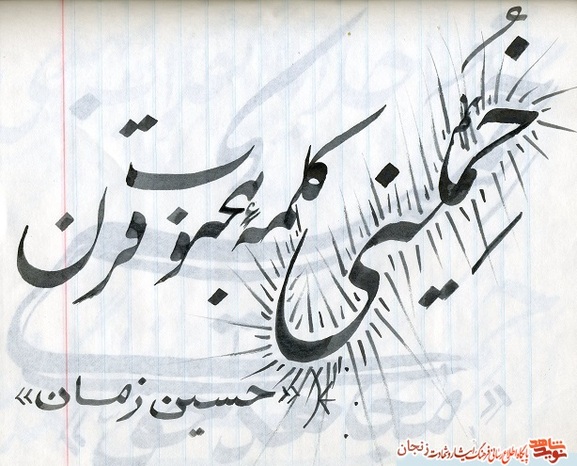 خُمینی کلمهٔ قرن ست
«حسین زمان»
نوید شاهد پایگاه اطلاع رسانی فرهنگ ایثار و شهادت زنجان